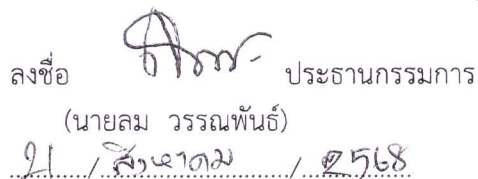 ลงชื่อ ประธานกรรมการ
(นายลม วรรณพันธ์)
21 / สิงหาคม / 2568